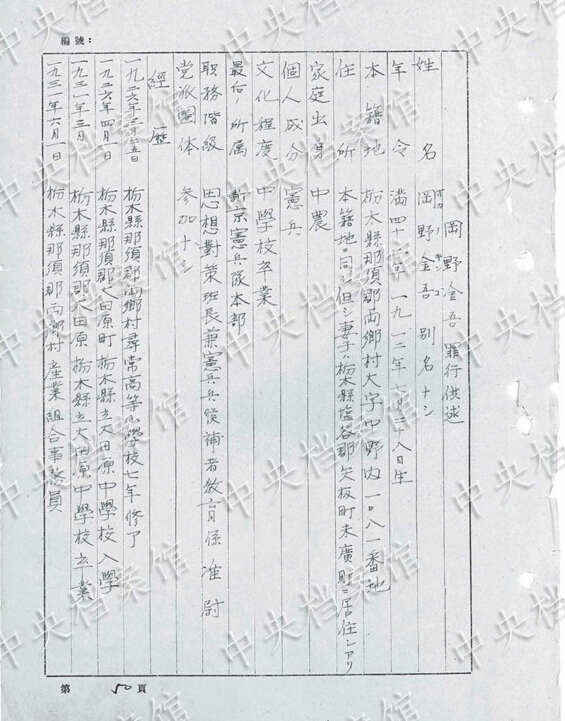 編號：
岡野金吾 罪行供述
姓 名 岡野金吾 別名ナシ
オカノ キンゴ
年 令 満四十二才 一九一二年七月二八日生
本籍地 栃木縣那須郡両郷村大字中野内一〇八一番地
住 所 本籍地ニ同シ但シ妻子ハ栃木縣塩谷郡矢板町末廣町ニ居住シアリ
家庭出身 中農
個人成分 憲兵
文化程度 中學校卒業
最后ノ所属 新京憲兵隊本部
職務階級 思想對策班長兼憲兵兵候補者教育係 准尉
党派團体 参加ナシ
經 歴
一九二六年三月二五日 栃木縣那須郡両郷村尋常高等小學校七年修了
一九二六年四月一日 栃木縣那須郡大田原町 栃木縣立大田原中學校入學
一九三一年三月 栃木縣那須郡大田原 栃木縣立大田原中學校卒業
一九三一年六月一日 栃木縣那須郡両郷村産業組合事務員
第 50 頁
中央档案馆